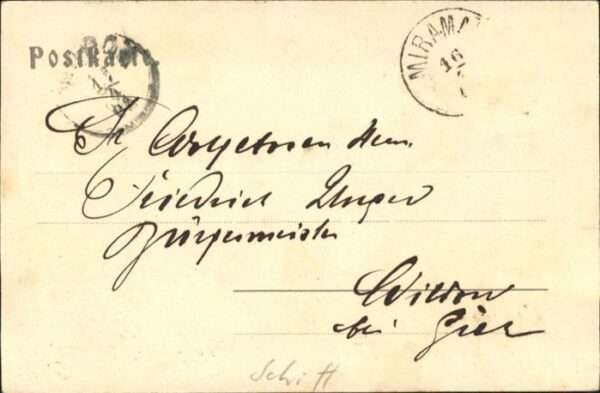 Postkarte.
MIRAMA
16
Sr. Wohlgeboren Herrn
Friedrich Unger
Bürgermeister
Wildon
bei Graz
Schiff